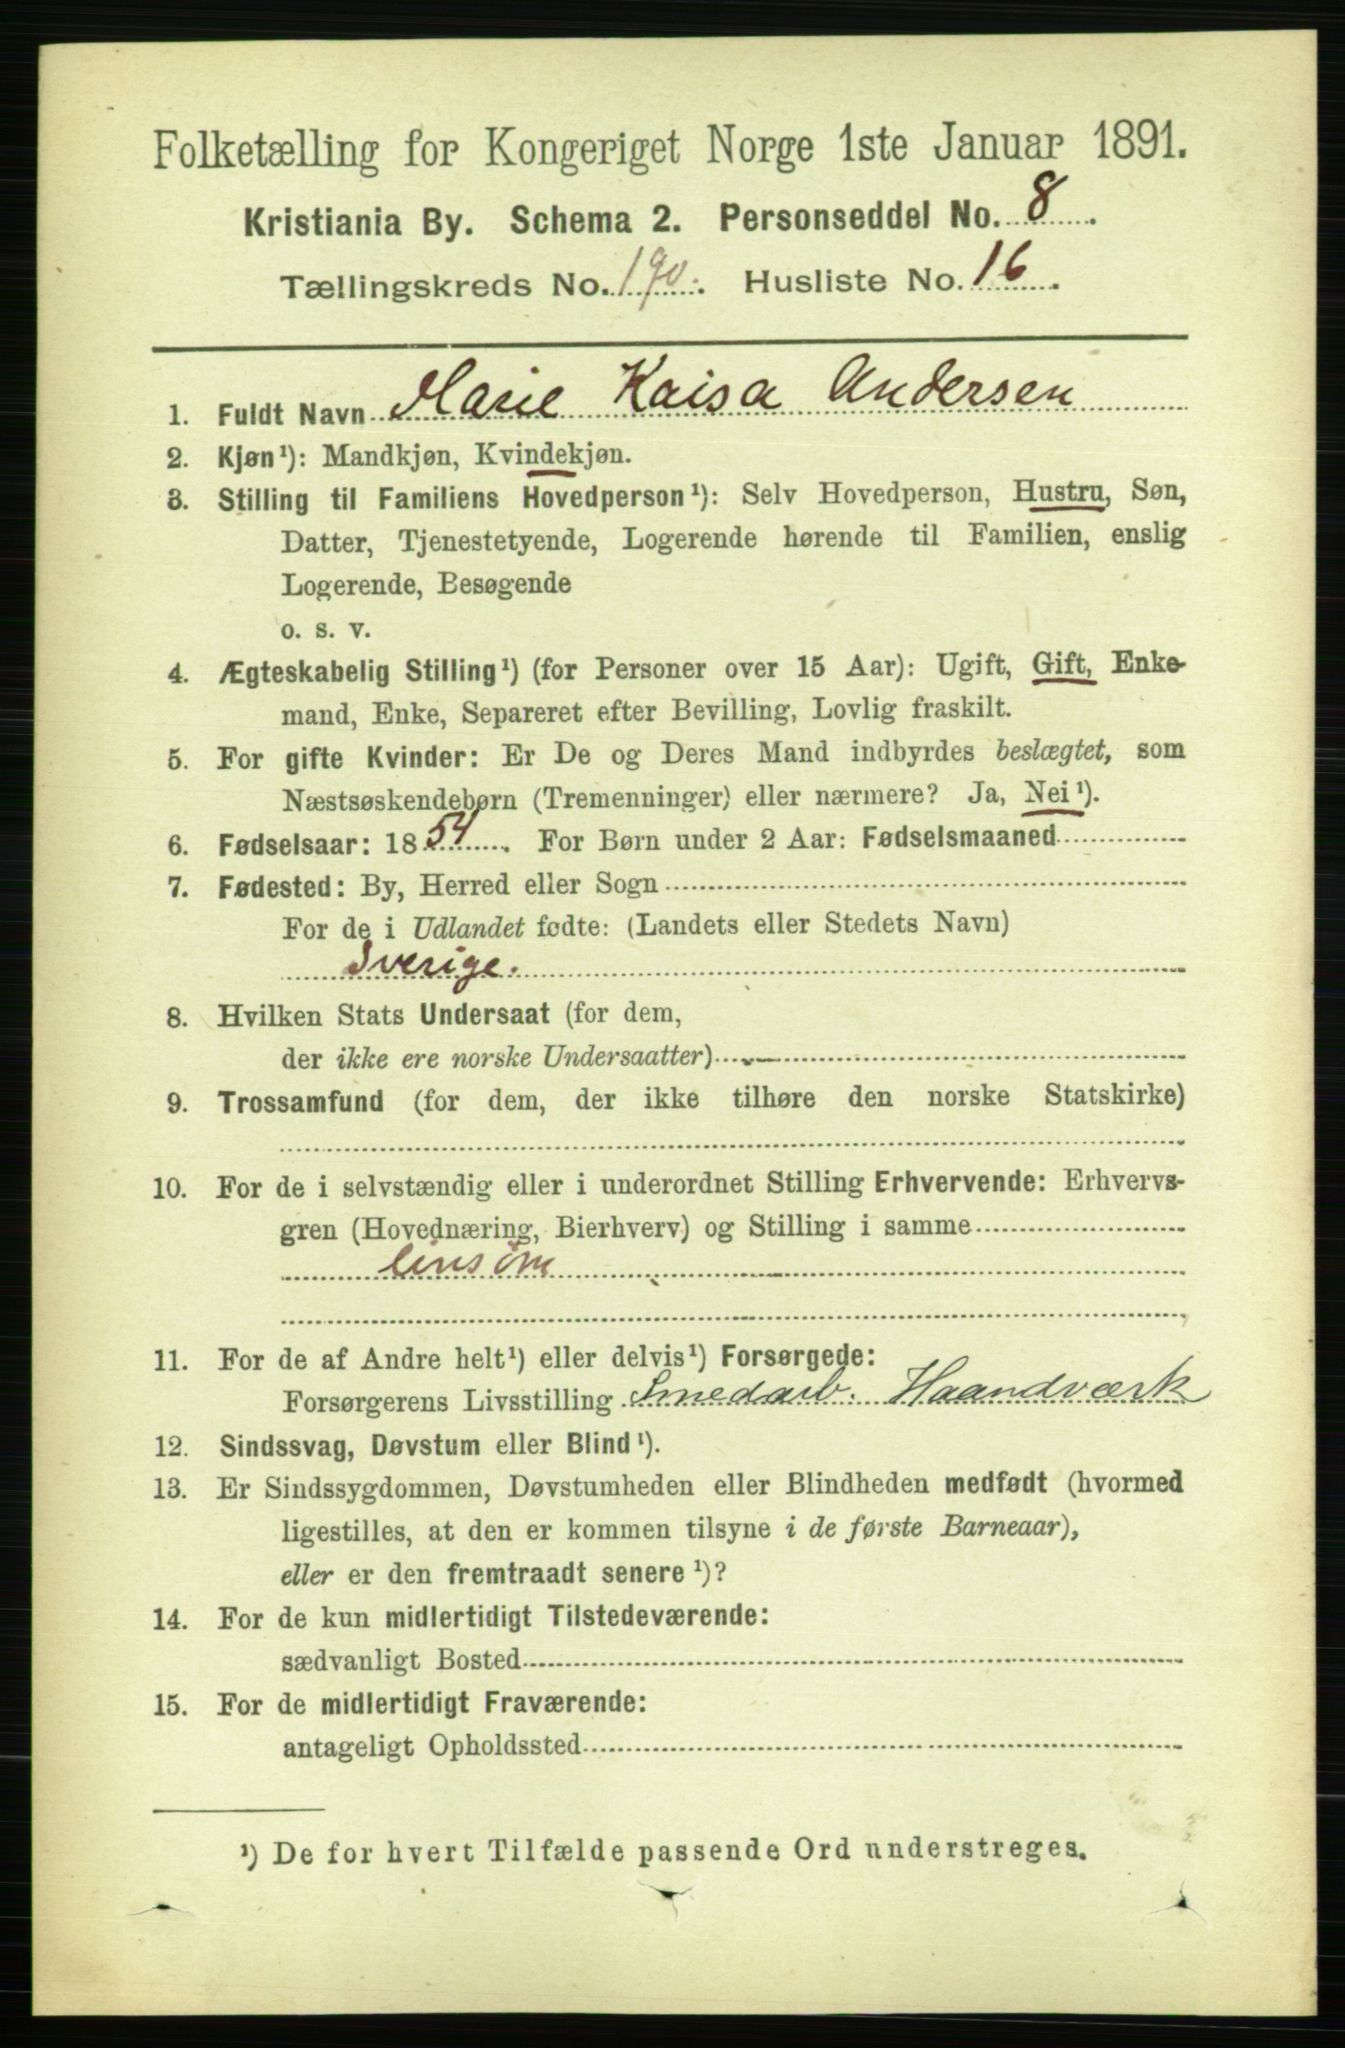 Folketælling for Kongeriget Norge 1ste Januar 1891.
Kristiania By. Schema 2. Personseddel No. 8.
Tællingskreds No. 190. Husliste No. 16.
1. Fuldt Navn Marie Kaisa Andersen
2. Kjøn¹): Mandkjøn, Kvindekjøn.
3. Stilling til Familiens Hovedperson¹): Selv Hovedperson, Hustru, Søn,
Datter, Tjenestetyende, Logerende hørende til Familien, enslig
Logerende, Besøgende
o. s. v.
4. Ægteskabelig Stilling¹) (for Personer over 15 Aar): Ugift, Gift, Enke-
mand, Enke, Separeret efter Bevilling, Lovlig fraskilt.
5. For gifte Kvinder: Er De og Deres Mand indbyrdes beslægtet, som
Næstsøskendebørn (Tremenninger) eller nærmere? Ja, Nei¹).
6. Fødselsaar: 1854. For Børn under 2 Aar: Fødselsmaaned
7. Fødested: By, Herred eller Sogn
For de i Udlandet fødte: (Landets eller Stedets Navn)
Sverige.
8. Hvilken Stats Undersaat (for dem,
der ikke ere norske Undersaatter)
9. Trossamfund (for dem, der ikke tilhøre den norske Statskirke)
10. For de i selvstændig eller i underordnet Stilling Erhvervende: Erhvervs-
gren (Hovednæring, Bierhverv) og Stilling i samme
linsøm
11. For de af Andre helt¹) eller delvis¹) Forsørgede:
Forsørgerens Livsstilling Smedarb. Haandværk
12. Sindssvag, Døvstum eller Blind¹).
13. Er Sindssygdommen, Døvstumheden eller Blindheden medfødt (hvormed
ligestilles, at den er kommen tilsyne i de første Barneaar),
eller er den fremtraadt senere¹)?
14. For de kun midlertidigt Tilstedeværende:
sædvanligt Bosted
15. For de midlertidigt Fraværende:
antageligt Opholdssted
¹) De for hvert Tilfælde passende Ord understreges.